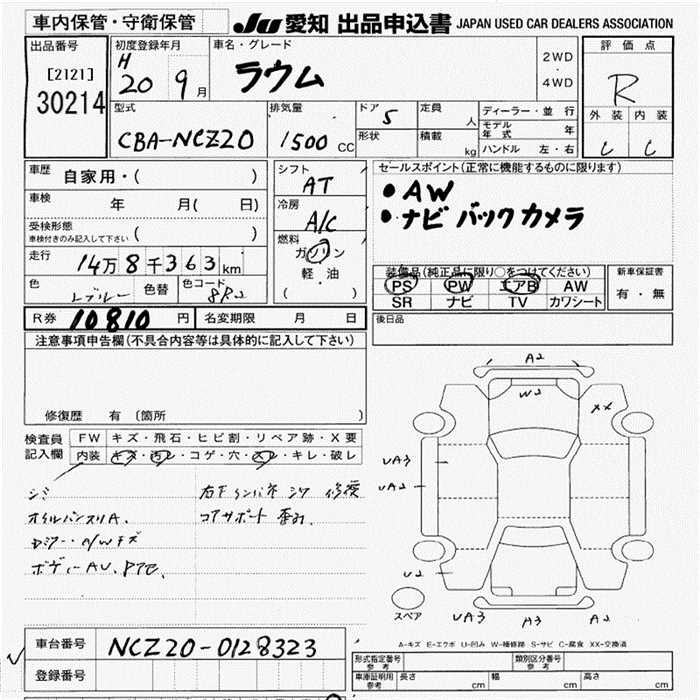 車内保管・守衛保管
JU 愛知 出品申込書 JAPAN USED CAR DEALERS ASSOCIATION
出品番号
[2121]
30214
初度登録年月
H
20 9月
車名・グレード
ラウム
2WD
・
4WD
評価点
R
外装 内装
し し
型式
CBA-NCZ20
排気量
1500 CC
ドア 5
形状
定員 人
積載 kg
ディーラー・並行
モデル年式 年
ハンドル 左・右
車歴 自家用・( )
車検 年 月( 日)
受検形態
車検付きのみ記入して下さい ( )
走行 14万8千363km
色 色替 色コード 8R2
シフト
AT
冷房
A/C
燃料
ガソリン
軽・油
( )
セールスポイント(正常に機能するものに限ります)
●AW
●ナビ バックカメラ
装備品(純正品に限り○をつけてください)
PS PW エアB AW
SR ナビ TV カワシート
新車保証書
有・無
R券 10810円 名変期限 月 日
後日品
注意事項申告欄(不具合内容等は具体的に記入して下さい)
修復歴 有 〔箇所 〕
検査員記入欄
FW キズ・飛石・ヒビ割・リペア跡・X要
内装 キズ・汚レ・コゲ・穴・スレ・キレ・破レ
シミ
オイルパンスリA.
A/Wキズ
ボディーAU.
コアサポート
修復
A2
W2
XX
UA3
UA2
U2
UA3
A3
A2
スペア
A-キズ E-エクボ U-凹み W-補修跡 S-サビ C-腐食 XX-交換済
車台番号 NCZ20-0128323
登録番号
形式指定番号 参考
類別区分番号 参考
車庫証明用 参考
長さ cm 幅 cm 高さ cm